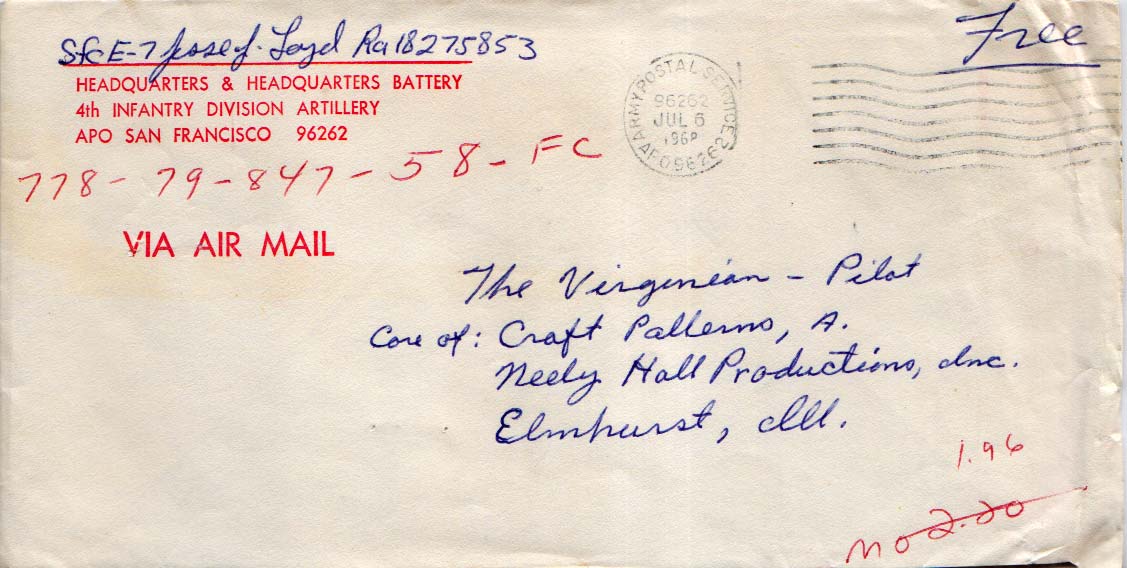 Sfc E-7 Jose J. Loyd Ra 18275853
Free
HEADQUARTERS & HEADQUARTERS BATTERY
4th INFANTRY DIVISION ARTILLERY
APO SAN FRANCISCO 96262
ARMY POSTAL SERVICE
96262
JUL 6
1968
APO 96262
778-79-847-58-FC
VIA AIR MAIL
The Virginian - Pilot
Care of: Craft Patterns, A.
Neely Hall Productions, Inc.
Elmhurst, Ill.
1.96
MO 2.20